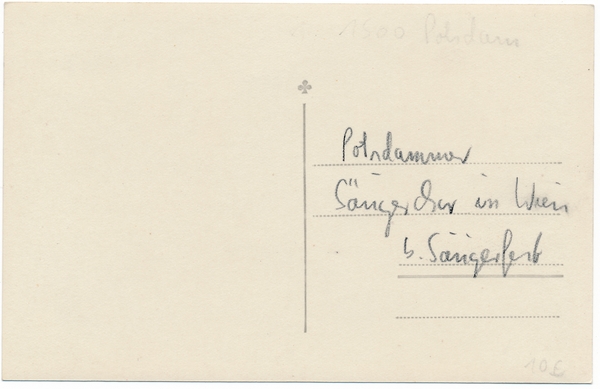 1500 Potsdam
Potsdammer
Sänger Chor in Wien
b. Sängerfest
10£